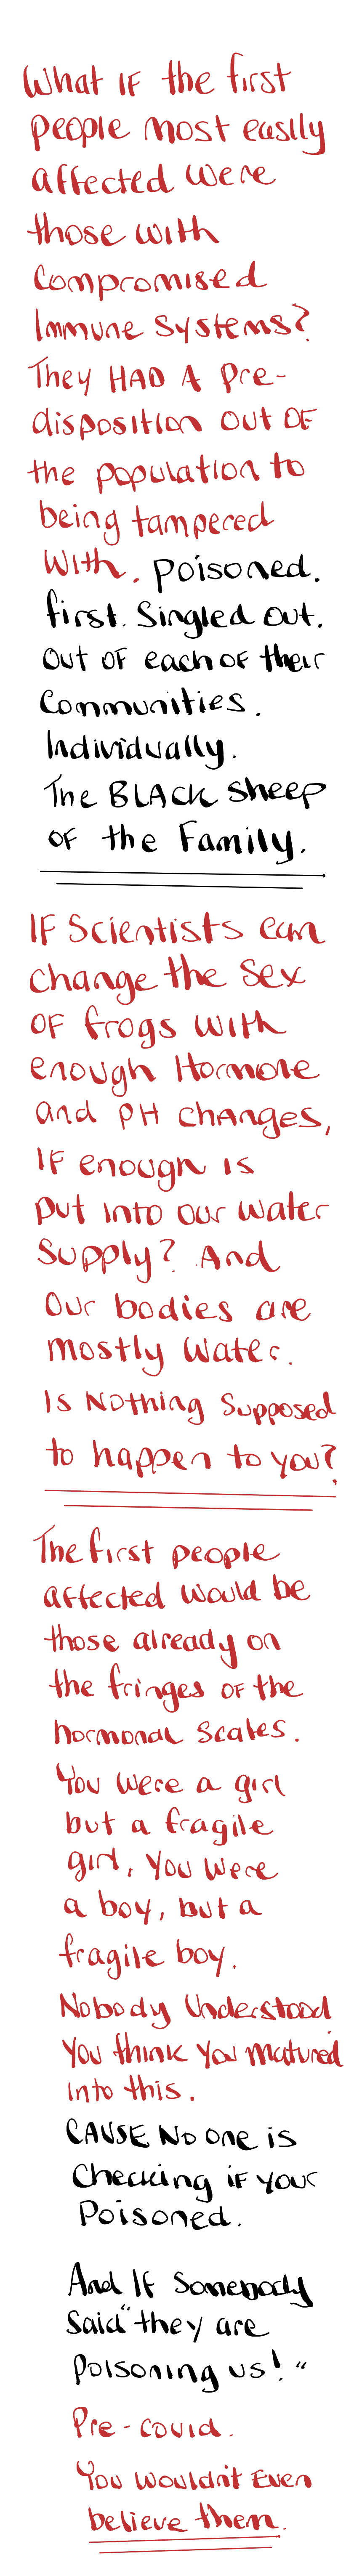 What IF the first
people most easily
affected were
those with
Compromised
Immune Systems?
They HAD A Pre-
disposition out OF
the population to
being tampered
With. Poisoned.
first. Singled out.
Out OF each of their
Communities.
Individually.
The BLACK Sheep
OF the Family.
IF Scientists can
change the Sex
OF frogs with
enough Hormone
and PH Changes,
IF enough is
put into our water
Supply? And
Our bodies are
mostly Water.
Is Nothing Supposed
to happen to you?
The first people
affected would be
those already on
the fringes OF the
hormonal Scales.
You were a girl
but a fragile
girl, You were
a boy, but a
fragile boy.
Nobody Understood
You think You matured
into this.
CAUSE No one is
Checking if your
Poisoned.
And If Somebody
Said "they are
poisoning us!"
Pre-covid.
You wouldn't Even
believe them.